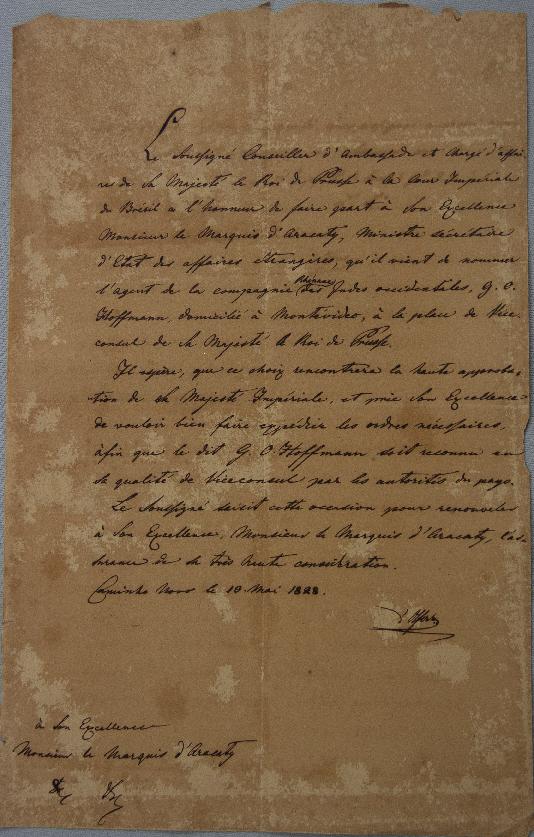 Le Soussigné Conseiller d'Ambassade et chargé d'affai-
res de Sa Majesté le Roi de Prusse à la Cour Impériale
du Brésil a l'honneur de faire part à Son Excellence
Monsieur le Marquis d'Aracaty, Ministre secretaire
d'Etat des affaires étrangères, qu'il vient de nommer
l'Agent de la compagnie Rhénane des Indes occidentales, G. O.
Hoffmann, domicilié à Montevideo, à la place de Vice-
consul de Sa Majesté le Roi de Prusse.
Il espère, que ce choix rencontrera la haute approba-
tion de Sa Majesté Impériale, et prie Son Excellence
de vouloir bien faire expédier les ordres nécessaires,
àfin que le dit G. O. Hoffmann soit reconnu en
sa qualité de Viceconsul par les autorités du pays.
Le Soussigné saisit cette occasion pour renouveler
à Son Excellence, Monsieur le Marquis d'Aracaty, l'as-
surance de sa très haute considération.
Caminho Novo le 19 Mai 1828.
d'Olfers
à Son Excellence
Monsieur le Marquis d'Aracaty